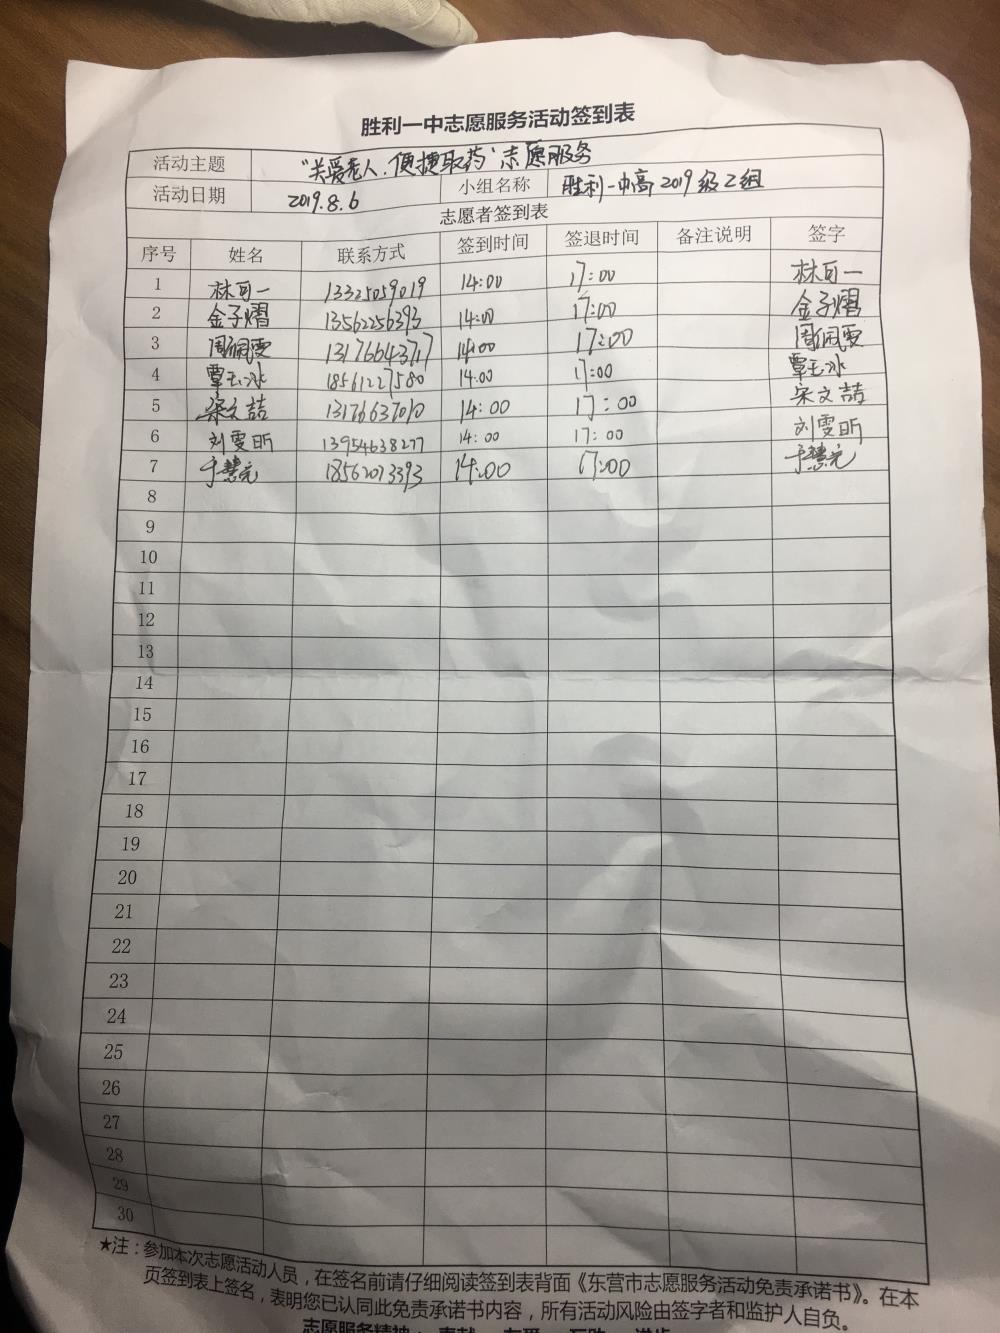 胜利一中志愿服务活动签到表
活动主题 "关爱老人.便捷取药"志愿服务
活动日期 2019.8.6 小组名称 胜利一中高2019级2组
志愿者签到表
序号 姓名 联系方式 签到时间 签退时间 备注说明 签字
1 林可一 13325059019 14:00 17:00 林可一
2 金子熠 13562256393 14:00 17:00 金子熠
3 周佩雯 13176643717 14:00 17:00 周佩雯
4 覃玉冰 18561227580 14:00 17:00 覃玉冰
5 宋文喆 13176637010 14:00 17:00 宋文喆
6 刘雯昕 13954638277 14:00 17:00 刘雯昕
7 于慧元 18562073393 14:00 17:00 于慧元
8
9
10
11
12
13
14
15
16
17
18
19
20
21
22
23
24
25
26
27
28
29
30
★注：参加本次志愿活动人员，在签名前请仔细阅读签到表背面《东营市志愿服务活动免责承诺书》。在本
页签到表上签名，表明您已认同此免责承诺书内容，所有活动风险由签字者和监护人自负。
志愿服务精神：奉献 友爱 互助 进步